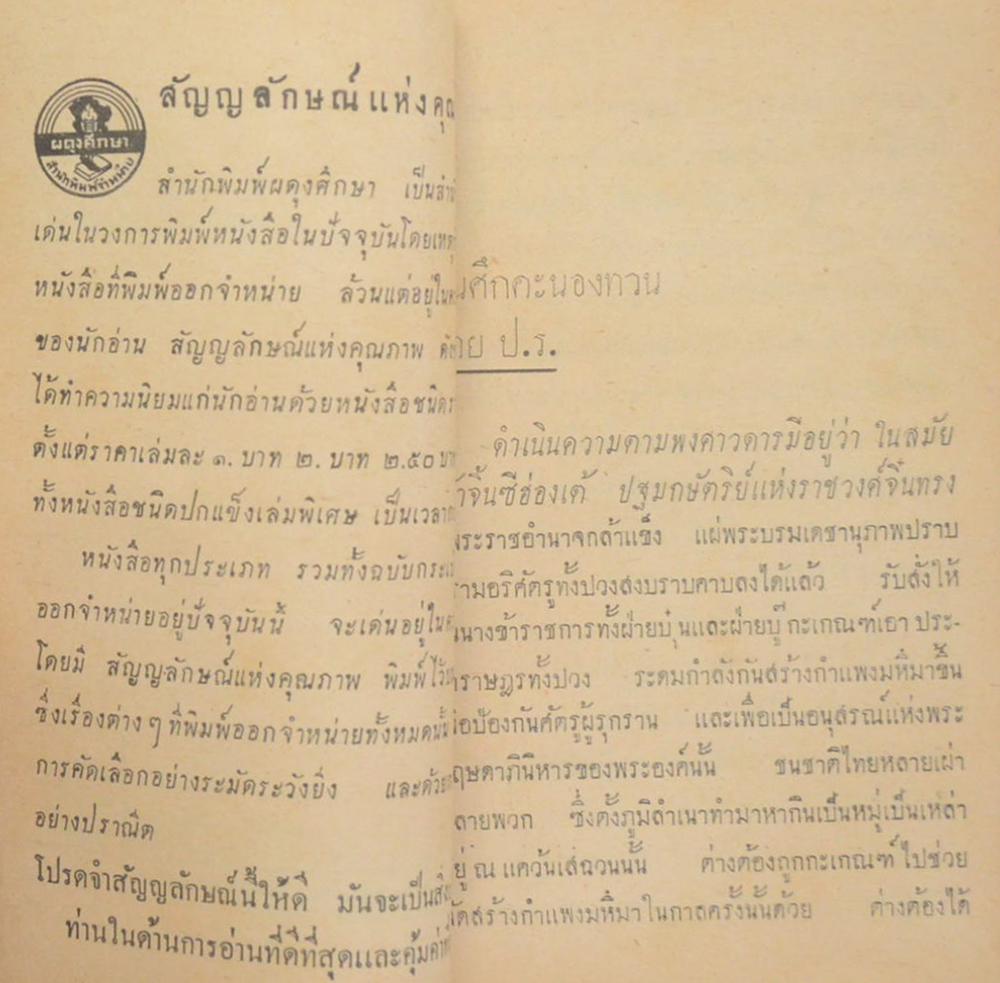 สัญญลักษณ์แห่งคุณ
ผดุงศึกษา
สำนักพิมพ์จำหน่าย
สำนักพิมพ์ผดุงศึกษา เป็นสำนั
เด่นในวงการพิมพ์หนังสือในปัจจุบันโดยเหตุ
หนังสือที่พิมพ์ออกจำหน่าย ล้วนแต่อยู่ใน
ของนักอ่าน สัญญลักษณ์แห่งคุณภาพ
ได้ทำความนิยมแก่นักอ่านด้วยหนังสือชนิด
ตั้งแต่ราคาเล่มละ ๑. บาท ๒. บาท ๒.๕๐
ทั้งหนังสือชนิดปกแข็งเล่มพิเศษ เป็นเวลา
หนังสือทุกประเภท รวมทั้งฉบับกระ
ออกจำหน่ายอยู่ปัจจุบันนี้ จะเด่นอยู่ใน
โดยมี สัญญลักษณ์แห่งคุณภาพ พิมพ์ไว้
ซึ่งเรื่องต่าง ๆ ที่พิมพ์ออกจำหน่ายทั้งหมดนั้น
การคัดเลือกอย่างระมัดระวังยิ่ง และด้วย
อย่างปราณีต
โปรดจำสัญญลักษณ์นี้ให้ดี มันจะเป็น
ท่านในด้านการอ่านที่ดีที่สุดและคุ้มค่า
นศึกคะนองทวน
าย ป.ร.
ดำเนินความตามพงศาวดารมีอยู่ว่า ในสมัย
จิ๋นซีฮ่องเต้ ปฐมกษัตริย์แห่งราชวงศ์จิ๋นทรง
งพระราชอำนาจกล้าแข็ง แผ่พระบรมเดชานุภาพปราบ
รามอริศัตรูทั้งปวงสงบราบคาบลงได้แล้ว รับสั่งให้
นนางข้าราชการทั้งฝ่ายบุ๋นและฝ่ายบู๊ กะเกณฑ์เอา ประ-
าราษฎรทั้งปวง ระดมกำลังกันสร้างกำแพงมหึมาขึ้น
่อป้องกันศัตรูผู้รุกราน และเพื่อเป็นอนุสรณ์แห่งพระ
ฤษดาภินิหารของพระองค์นั้น ชนชาติไทยหลายเผ่า
ลายพวก ซึ่งตั้งภูมิลำเนาทำมาหากินเป็นหมู่เป็นเหล่า
ยู่ ณ แคว้นเสฉวนนั้น ต่างต้องถูกกะเกณฑ์ไปช่วย
สร้างกำแพงมหึมาในกาลครั้งนั้นด้วย ต่างต้องได้